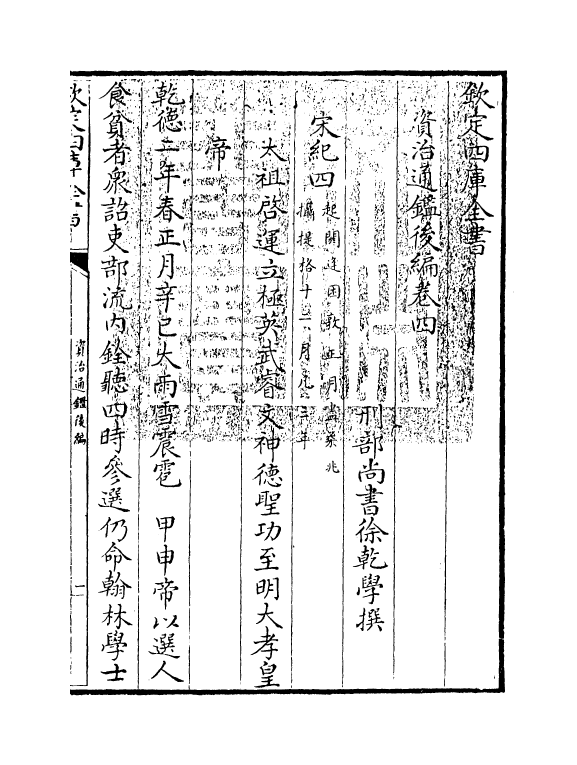 欽定四庫全書
資治通鑑後編卷四
刑部尚書徐乾學撰
宋紀四
起閼逢困敦正月盡柔兆
攝提格十二月凡三年
太祖啓運立極英武睿文神德聖功至明大孝皇
帝
乾德二年春正月辛巳大雨雪震雹 甲申帝以選人
食貧者衆詔吏部流內銓聽四時參選仍命翰林學士
欽定四庫全書
資治通鑑後編
一